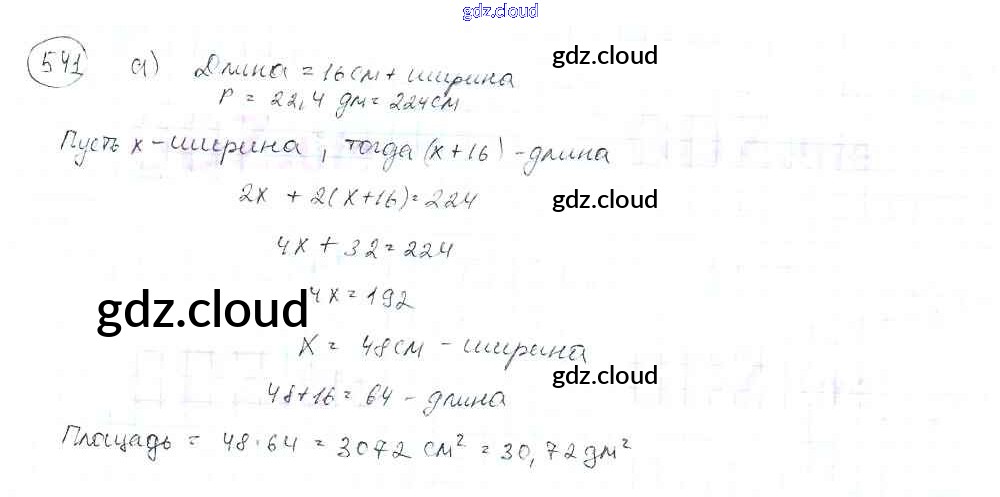 gdz.cloud
gdz.cloud
541 а) Длина = 16 см + ширина
P = 22,4 дм = 224 см
Пусть x - ширина, тогда (x+16) - длина
2x + 2(x+16) = 224
gdz.cloud
4x + 32 = 224
gdz.cloud
4x = 192
x = 48 см - ширина
gdz.cloud
48+16 = 64 - длина
Площадь = 48·64 = 3072 см² = 30,72 дм²